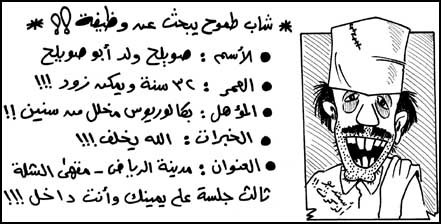 * شاب طموح يبحث عن وظيفة !! *
• الأسم : صويلح ولد أبو صويلح
• العمر : ٣٢ سنة ويمكن زود !!!
• المؤهل : بكالوريوس مخلل من سنين !!
• الخبرات : الله يخلف !!!
• العنوان : مدينة الرياض - مقهى الشلة
ثالث جلسة على يمينك وأنت داخل !!!